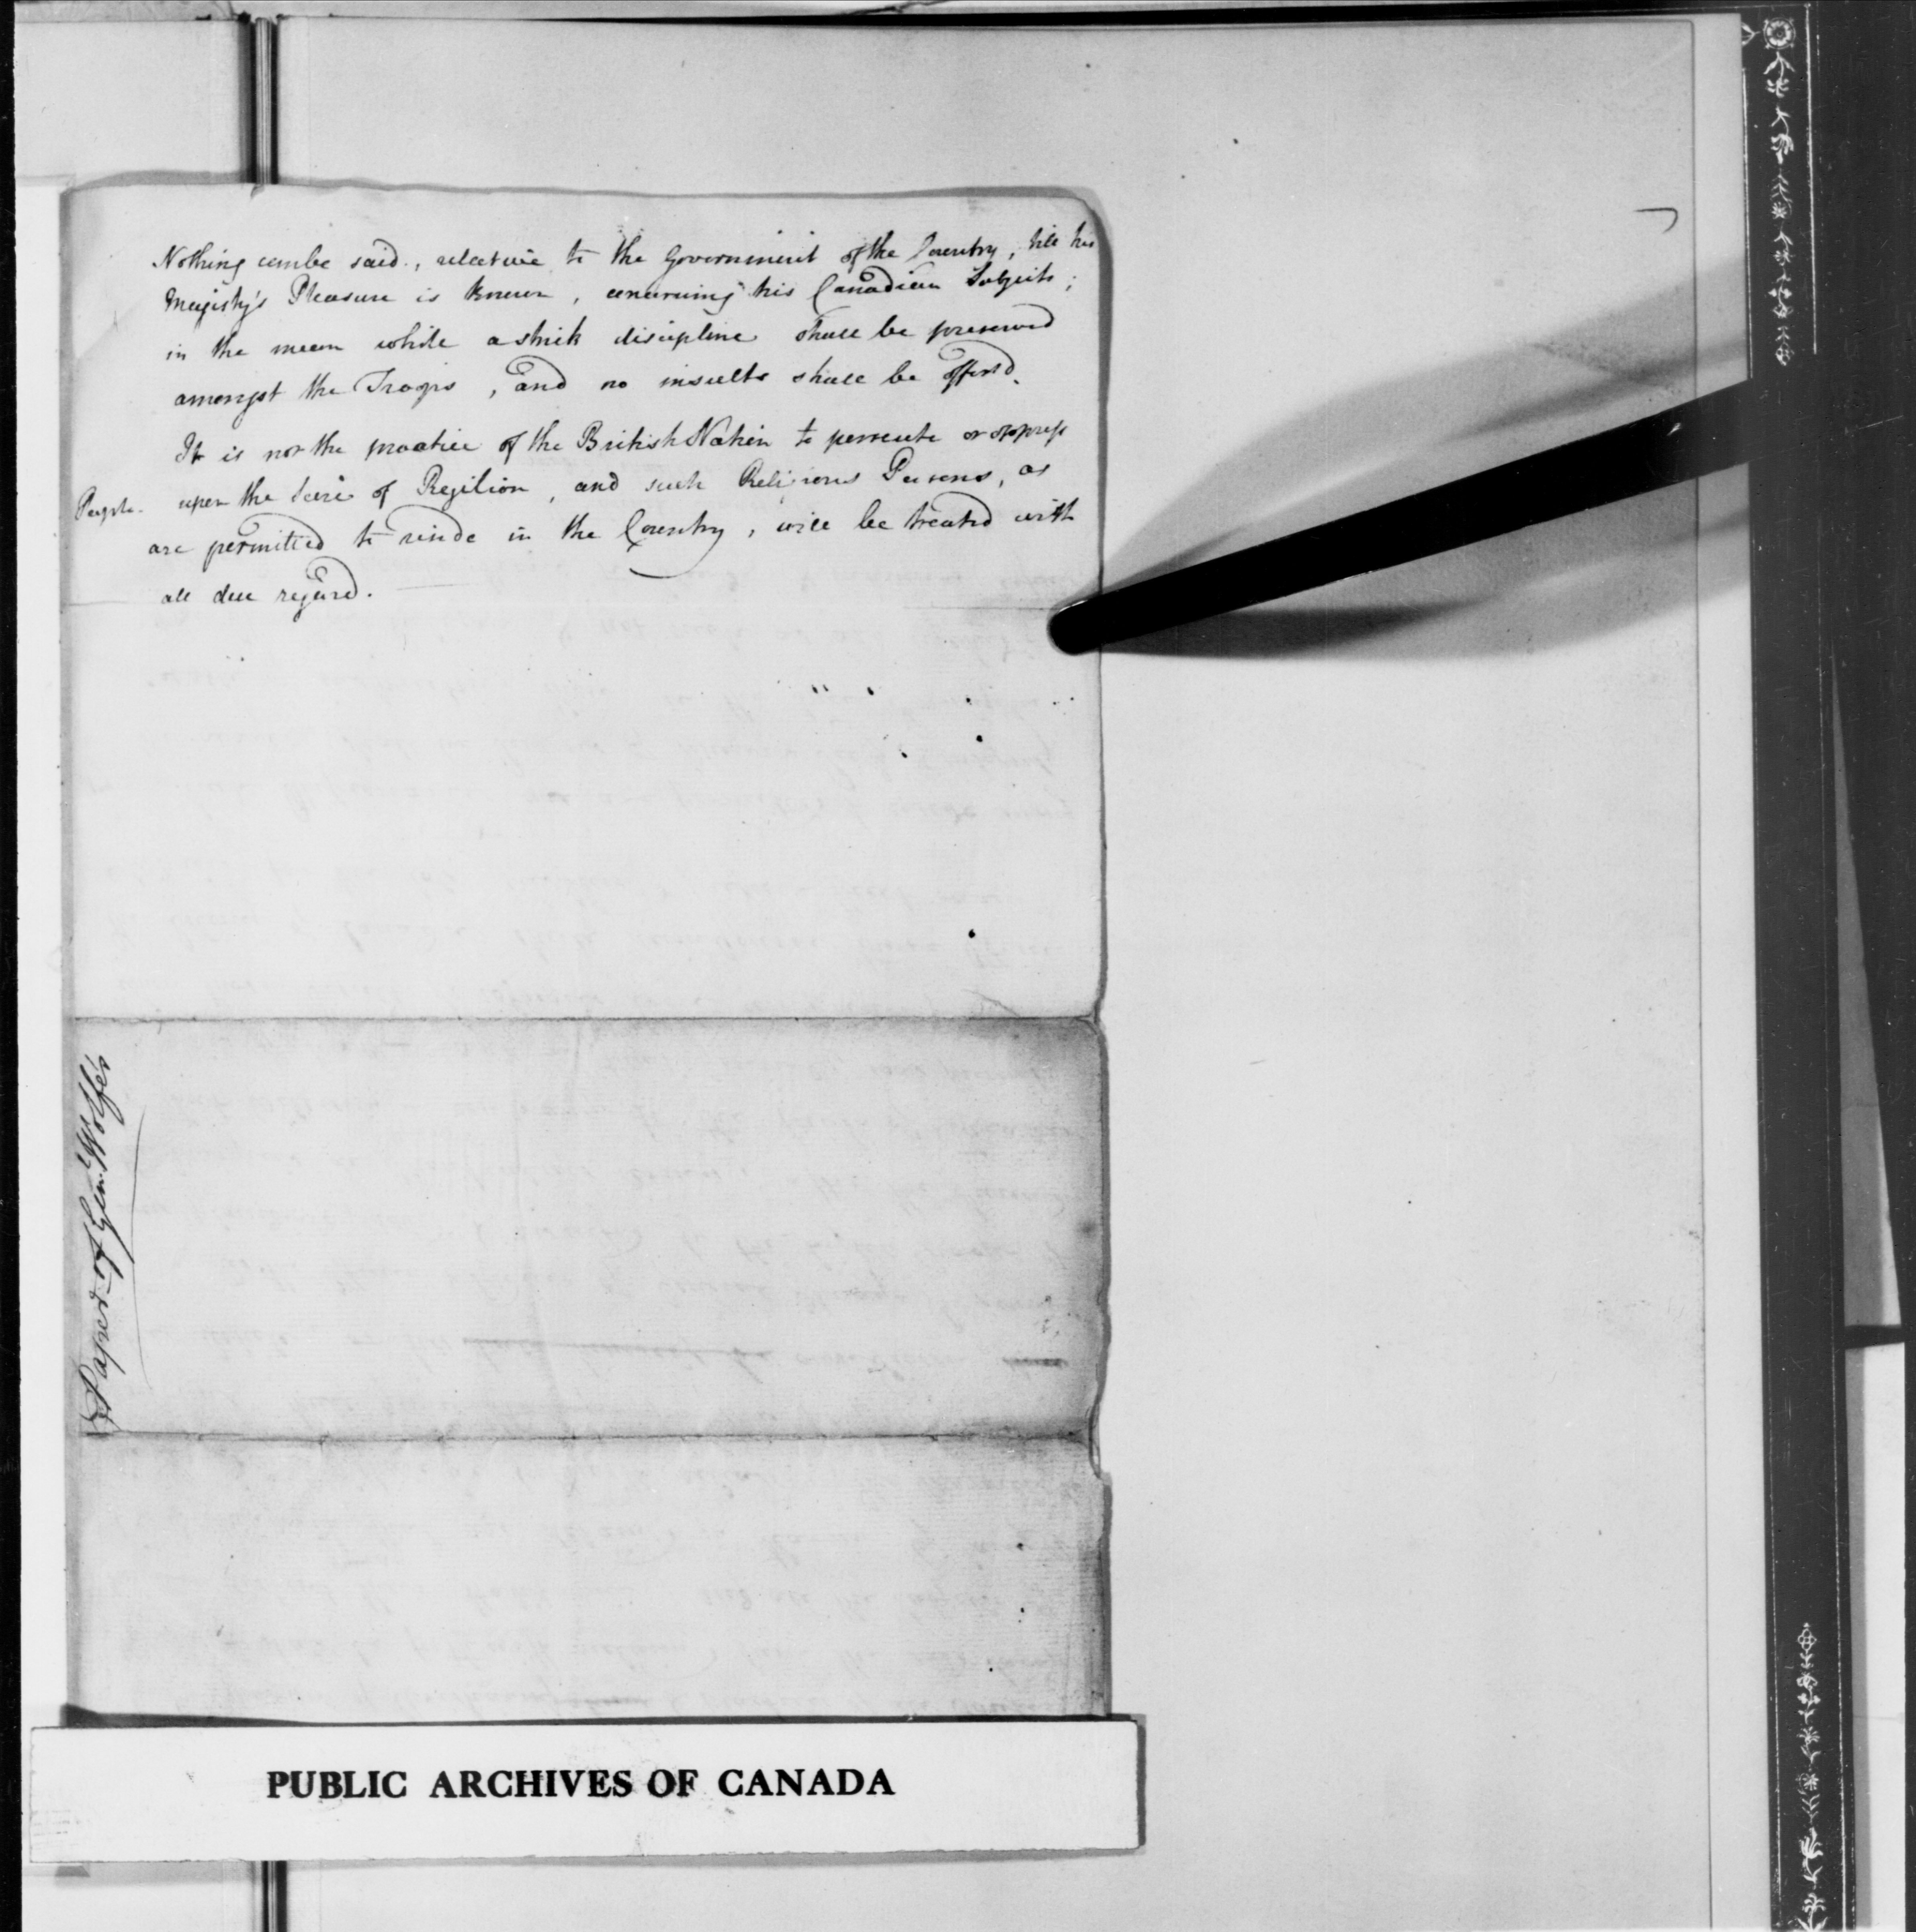 Nothing can be said, relative to the Government of the Country, till his
Majesty's Pleasure is known, concerning his Canadian Subjects;
in the mean while a strick discipline shall be preserved
amongst the Troops, and no insults shall be offer'd.
It is not the practice of the British Nation to persecute or oppress
People upon the Score of Regilion, and such Religious Persons, as
are permitted to reside in the Country, will be treated with
all due regard.
Paper of Genl. Wolfe's
PUBLIC ARCHIVES OF CANADA